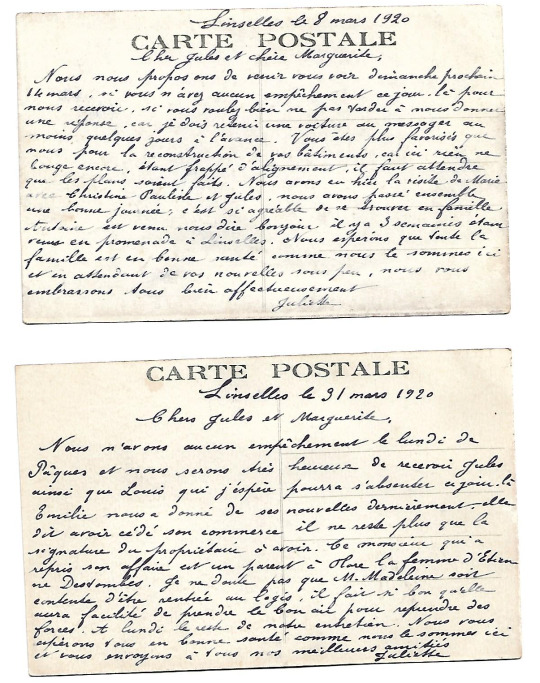 Linselles le 8 mars 1920
CARTE POSTALE
Cher Jules et chère Marguerite,
Nous nous proposons de venir vous voir dimanche prochain
14 mars, si vous n'avez aucun empêchement ce jour-là pour
nous recevoir. si vous voulez bien ne pas tarder à nous donner
une réponse, car je dois retenir une voiture au messager au
moins quelques jours à l'avance. Vous êtes plus favorisés que
nous pour la reconstruction de vos bâtiments, car ici rien ne
bouge encore, étant frappé d'alignement, il faut attendre
que les plans soient faits. Nous avons eu hier la visite de Marie
avec Christine Pauline et Jules, nous avons passé ensemble
une bonne journée; c'est si agréable de se trouver en famille
est venu nous dire bonjour il y a 3 semaines étant
venu en promenade à Linselles. Nous espérons que toute la
famille est en bonne santé comme nous le sommes ici
et en attendant de vos nouvelles sous peu, nous vous
embrassons tous bien affectueusement
Juliette
CARTE POSTALE
Linselles le 31 mars 1920
Chers Jules et Marguerite,
Nous n'avons aucun empêchement le lundi de
Pâques et nous serons très heureux de recevoir Jules
ainsi que Louis qui j'espère pourra s'absenter ce jour-là
Emilie nous a donné de ses nouvelles dernièrement, elle
dit avoir cédé son commerce il ne reste plus que la
signature du propriétaire à avoir. Ce monsieur qui a
repris son affaire est un parent à la femme d'Etienne
née Destombes. Je ne doute pas que M. Madeleine soit
contente d'être rentrée au logis, il fait si bon qu'elle
aura facilité de prendre le bon air pour reprendre des
forces. A lundi le reste de notre entretien. Nous vous
espérons tous en bonne santé comme nous le sommes ici
et vous envoyons à tous nos meilleurs amitiés
Juliette